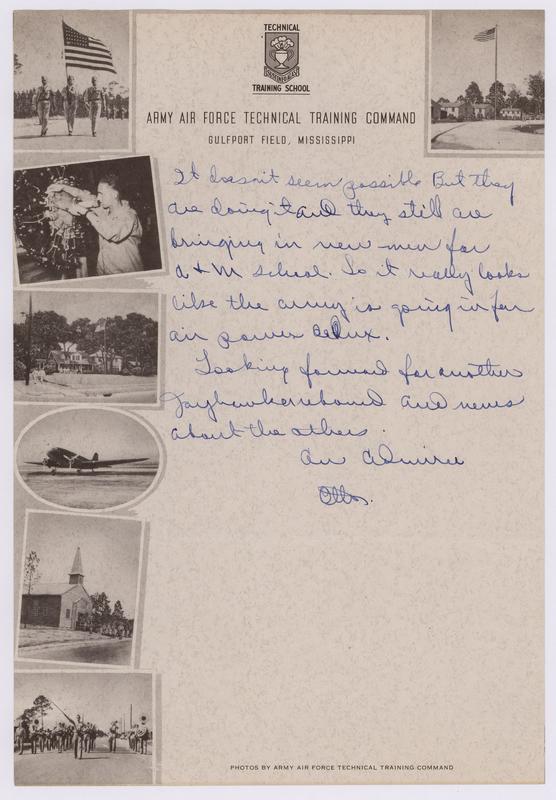 TECHNICAL
TRAINING SCHOOL
ARMY AIR FORCE TECHNICAL TRAINING COMMAND
GULFPORT FIELD, MISSISSIPPI
It doesn't seem possible But they
are doing it and they still are
bringing in new men for
a & M school. So it really looks
like the army is going in for
air power delux.
Looking forward for another
Jayhawker rebound and news
about the others.
An admirer
Otto.
PHOTOS BY ARMY AIR FORCE TECHNICAL TRAINING COMMAND